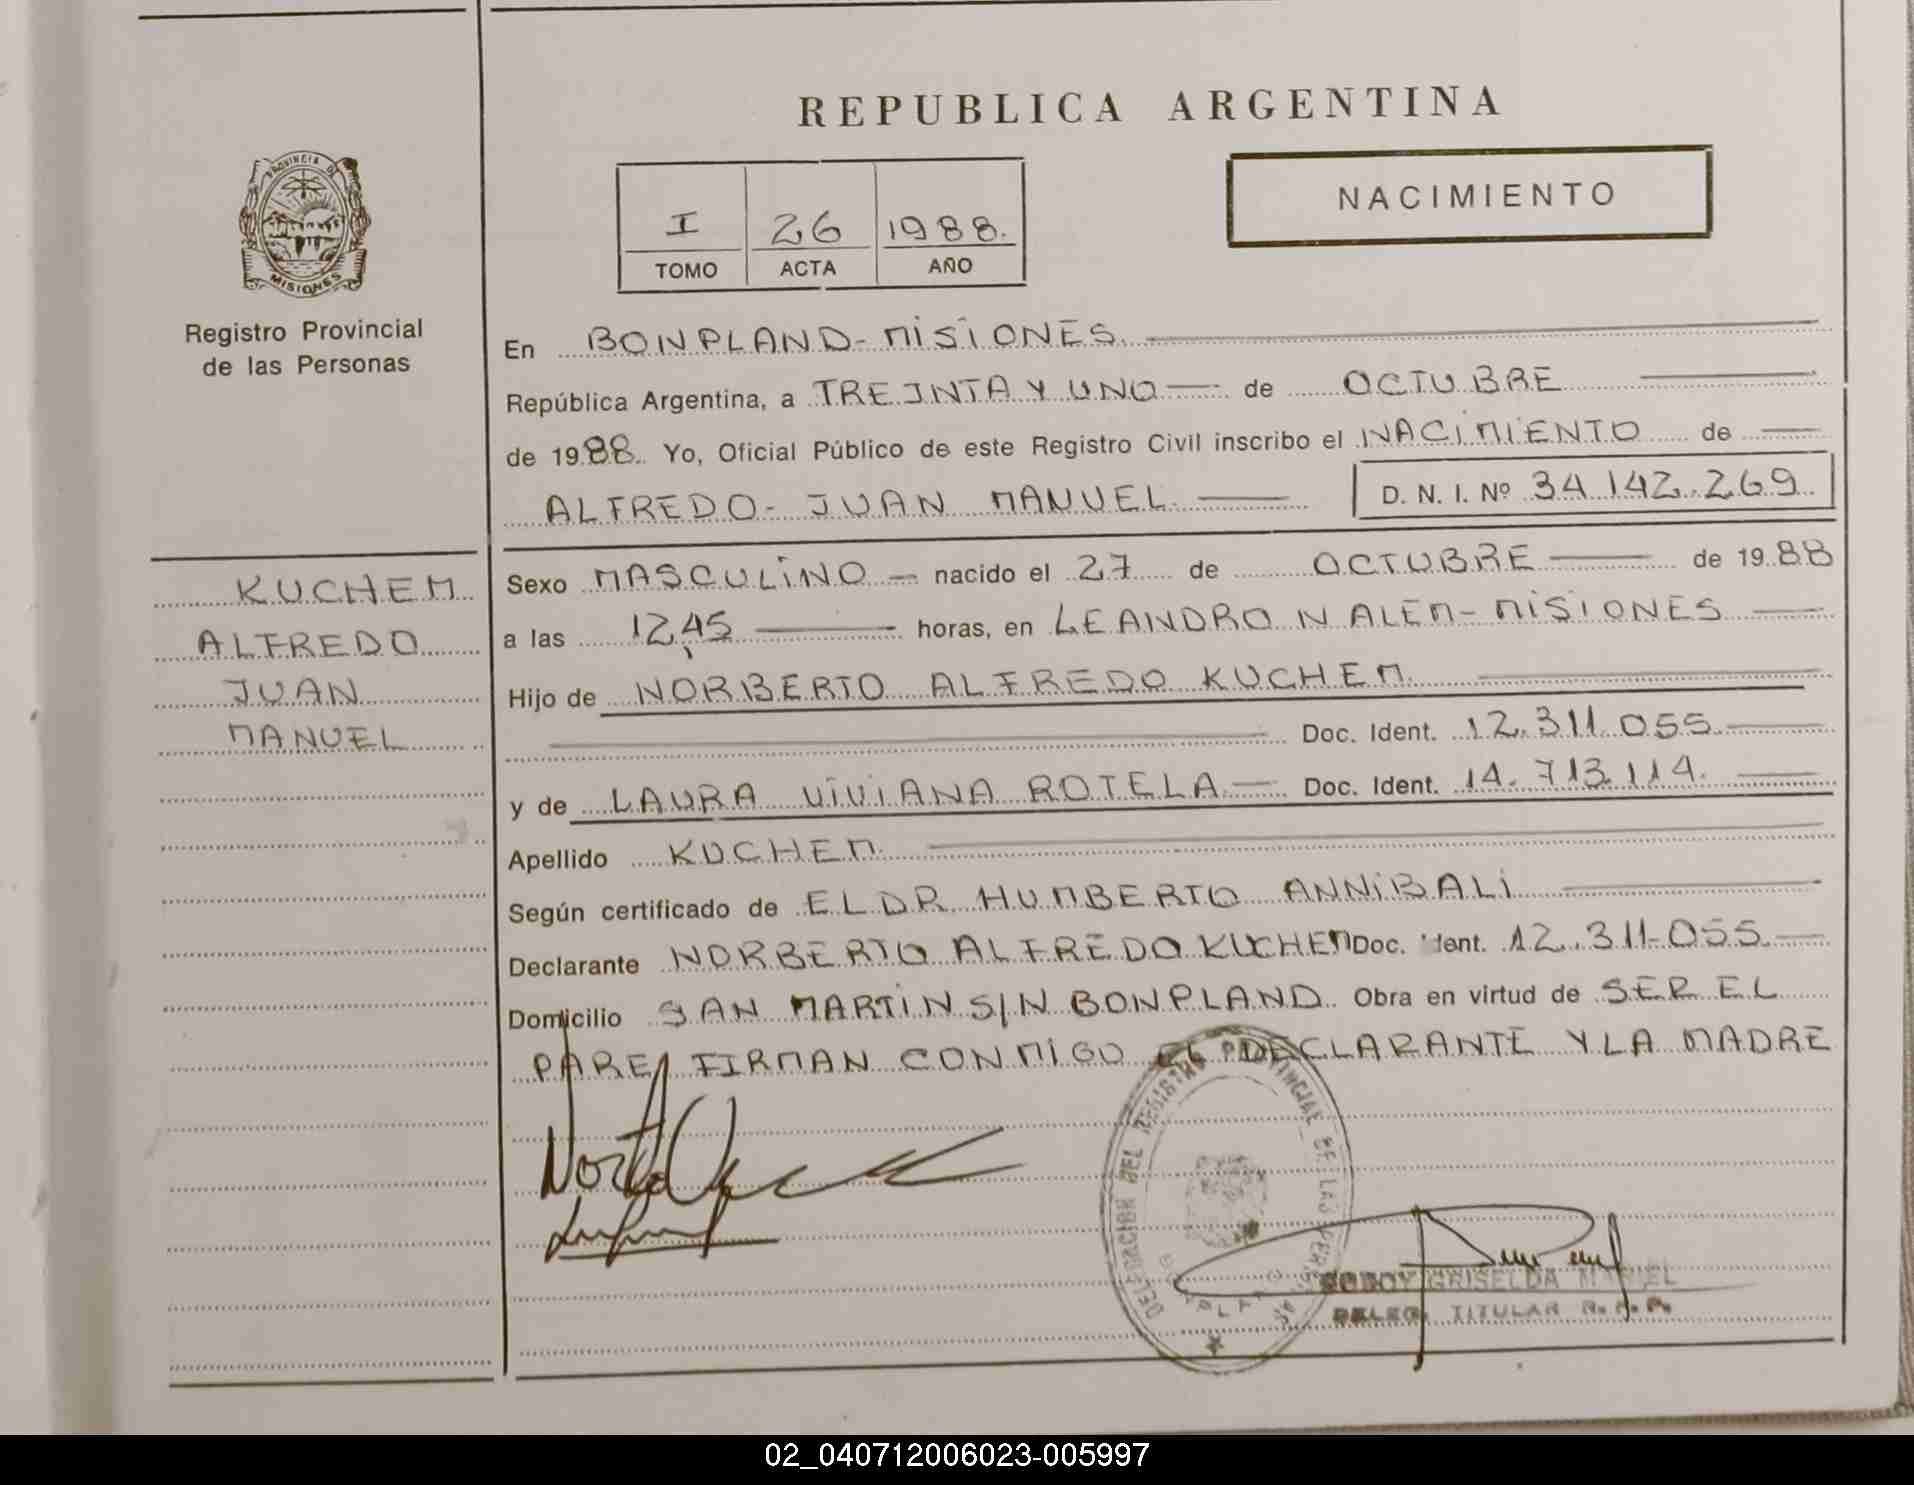 REPUBLICA ARGENTINA
NACIMIENTO
I 26 1988.
TOMO ACTA AÑO
PROVINCIA DE
MISIONES
Registro Provincial
de las Personas
En BONPLAND - MISIONES
República Argentina, a TREINTA Y UNO de OCTUBRE
de 1988. Yo, Oficial Público de este Registro Civil inscribo el NACIMIENTO de
ALFREDO - JUAN MANUEL D. N. I. Nº 34.142.269
KUCHEM
ALFREDO
JUAN
MANUEL
Sexo MASCULINO nacido el 27 de OCTUBRE de 1988
a las 12,45 horas, en LEANDRO N ALEM - MISIONES
Hijo de NORBERTO ALFREDO KUCHEM
Doc. Ident. 12.311.055
y de LAURA VIVIANA ROTELA Doc. Ident. 14.713.114.
Apellido KUCHEM
Según certificado de EL DR HUMBERTO ANNIBALI
Declarante NORBERTO ALFREDO KUCHEM Doc. Ident. 12.311-055
Domicilio SAN MARTIN S/N BONPLAND. Obra en virtud de SER EL
PARE FIRMAN CONMIGO EL DECLARANTE Y LA MADRE
DELEGACION DEL REGISTRO PROVINCIAL DE LAS PERSONAS
BONPLAND
GODOY GRISELDA MARIEL
DELEG. TITULAR R. P. P.
02_040712006023-005997